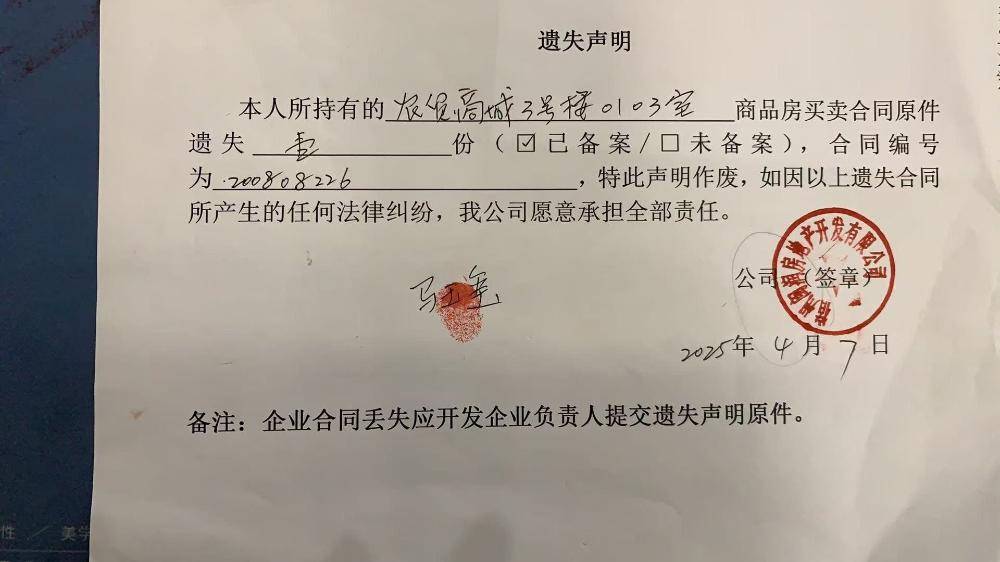 遗失声明
本人所持有的 农贸商城3号楼0103室 商品房买卖合同原件
遗失 壹 份（☑已备案/☐未备案），合同编号
为 200808226 ，特此声明作废，如因以上遗失合同
所产生的任何法律纠纷，我公司愿意承担全部责任。
房地产开发有限公司
公司 （签章）
2025年 4 月 7 日
备注：企业合同丢失应开发企业负责人提交遗失声明原件。
性 / 美学